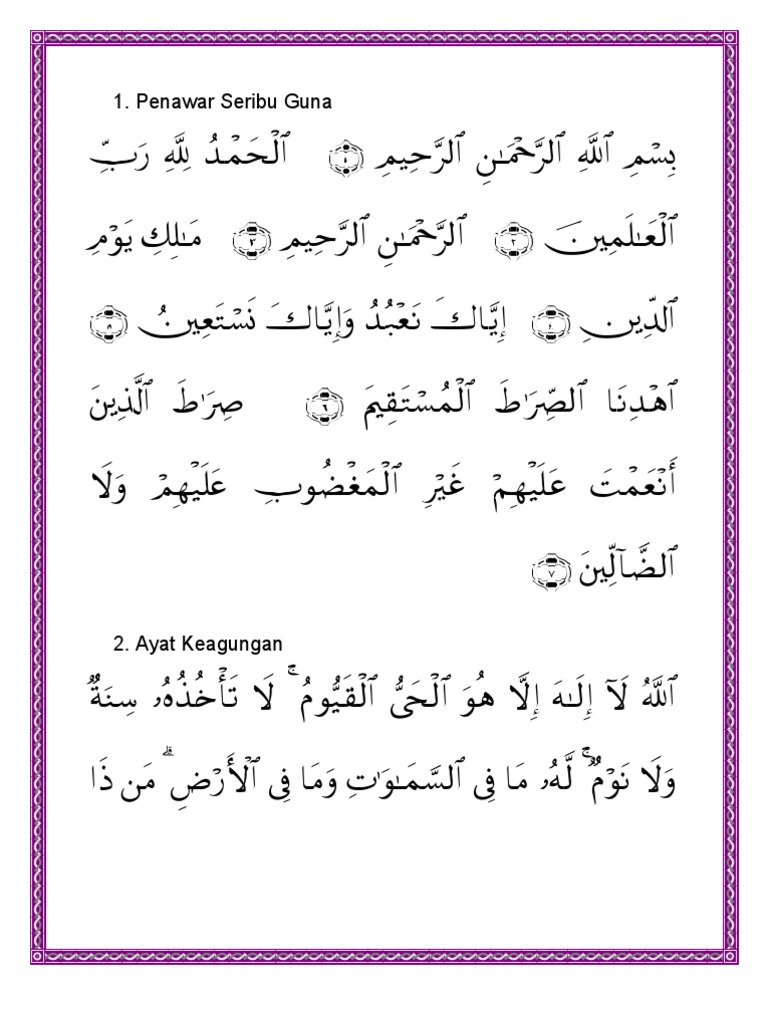 1. Penawar Seribu Guna
بِسْمِ ٱللَّهِ ٱلرَّحْمَـٰنِ ٱلرَّحِيمِ ١ ٱلْحَمْدُ لِلَّهِ رَبِّ
ٱلْعَـٰلَمِينَ ٢ ٱلرَّحْمَـٰنِ ٱلرَّحِيمِ ٣ مَـٰلِكِ يَوْمِ
ٱلدِّينِ ٤ إِيَّاكَ نَعْبُدُ وَإِيَّاكَ نَسْتَعِينُ ٥
ٱهْدِنَا ٱلصِّرَٰطَ ٱلْمُسْتَقِيمَ ٦ صِرَٰطَ ٱلَّذِينَ
أَنْعَمْتَ عَلَيْهِمْ غَيْرِ ٱلْمَغْضُوبِ عَلَيْهِمْ وَلَا
ٱلضَّآلِّينَ ٧
2. Ayat Keagungan
ٱللَّهُ لَآ إِلَـٰهَ إِلَّا هُوَ ٱلْحَىُّ ٱلْقَيُّومُ ۚ لَا تَأْخُذُهُۥ سِنَةٌ
وَلَا نَوْمٌ ۚ لَّهُۥ مَا فِى ٱلسَّمَـٰوَٰتِ وَمَا فِى ٱلْأَرْضِ ۗ مَن ذَا